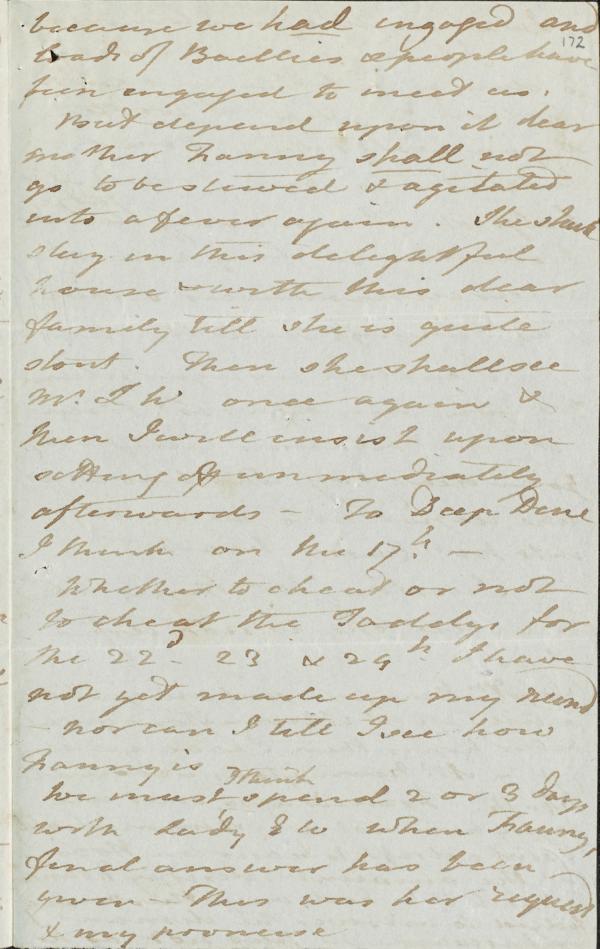 because we had engaged and
172
loads of Baillies & people have
been engaged to meet us.
But depend upon it dear
mother Fanny shall not
go to be stewed & agitated
into a fever again. She shall
stay in this delightful
house & with this dear
family till she is quite
stout. Then she shall see
Mr. L W once again &
then I will insist upon
setting off immediately
afterwards – To Deep Dene
I think on the 17th. –
Whether to cheat or not
to cheat the Taddys for
the 22d. 23 & 24th I have
not yet made up my mind
– nor can I till I see how
Fanny is
I think
We must spend 2 or 3 days
with Lady E W when Fanny's
final answer has been
given – This was her request
& my promise